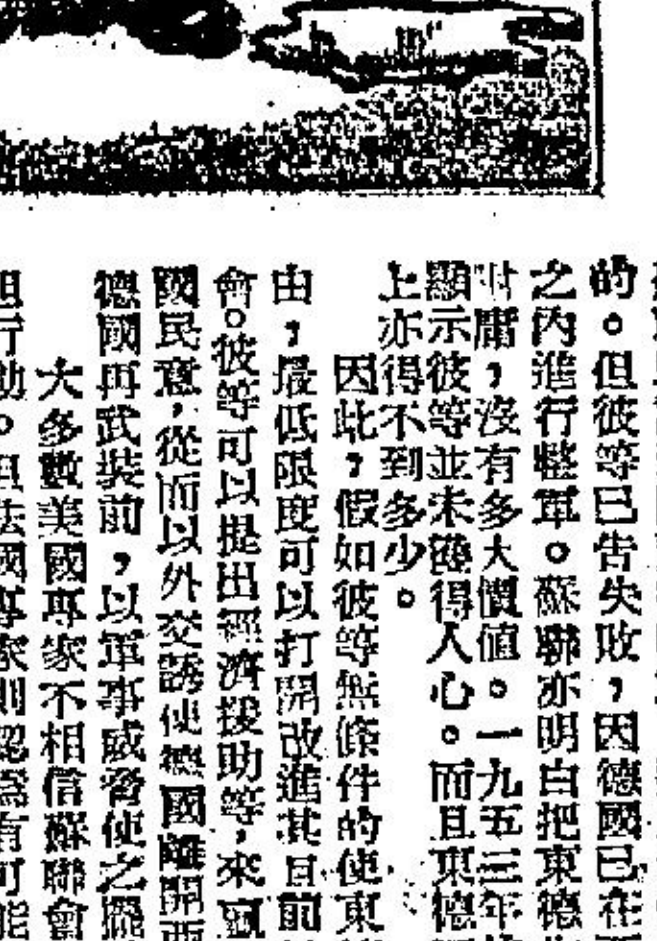 的。但彼等已告失敗，因德國已在
之內進行整軍。蘇聯亦明白把東德
附庸，沒有多大價值。一九五三年
顯示彼等並未獲得人心。而且東德
上亦得不到多少。
因此，假如彼等無條件的使東
由，最低限度可以打開改進其目前
會。彼等可以提出經濟援助等，來
國民意，從而以外交誘使德國離開西
德國再武裝前，以軍事威脅使之擺
大多數美國專家不相信蘇聯會
但行動。但法國專家則認為有可能